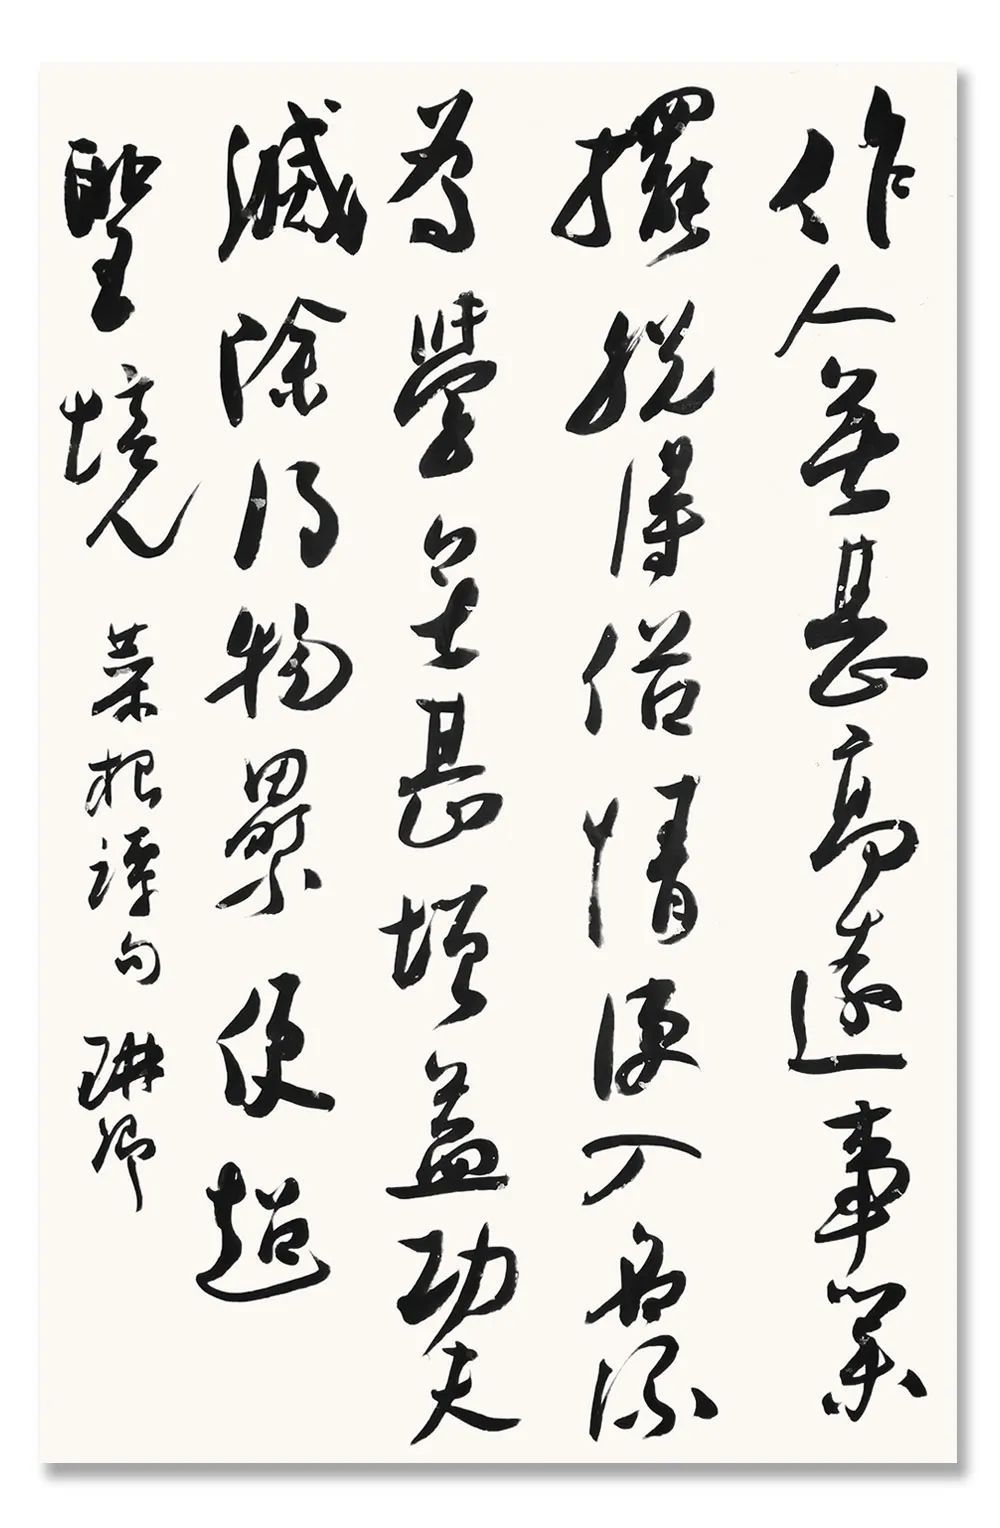 作人無甚高遠事業
擺脫得俗情便入名流
為學無甚增益功夫
減除得物累便超
聖境 菜根譚句 琳卿